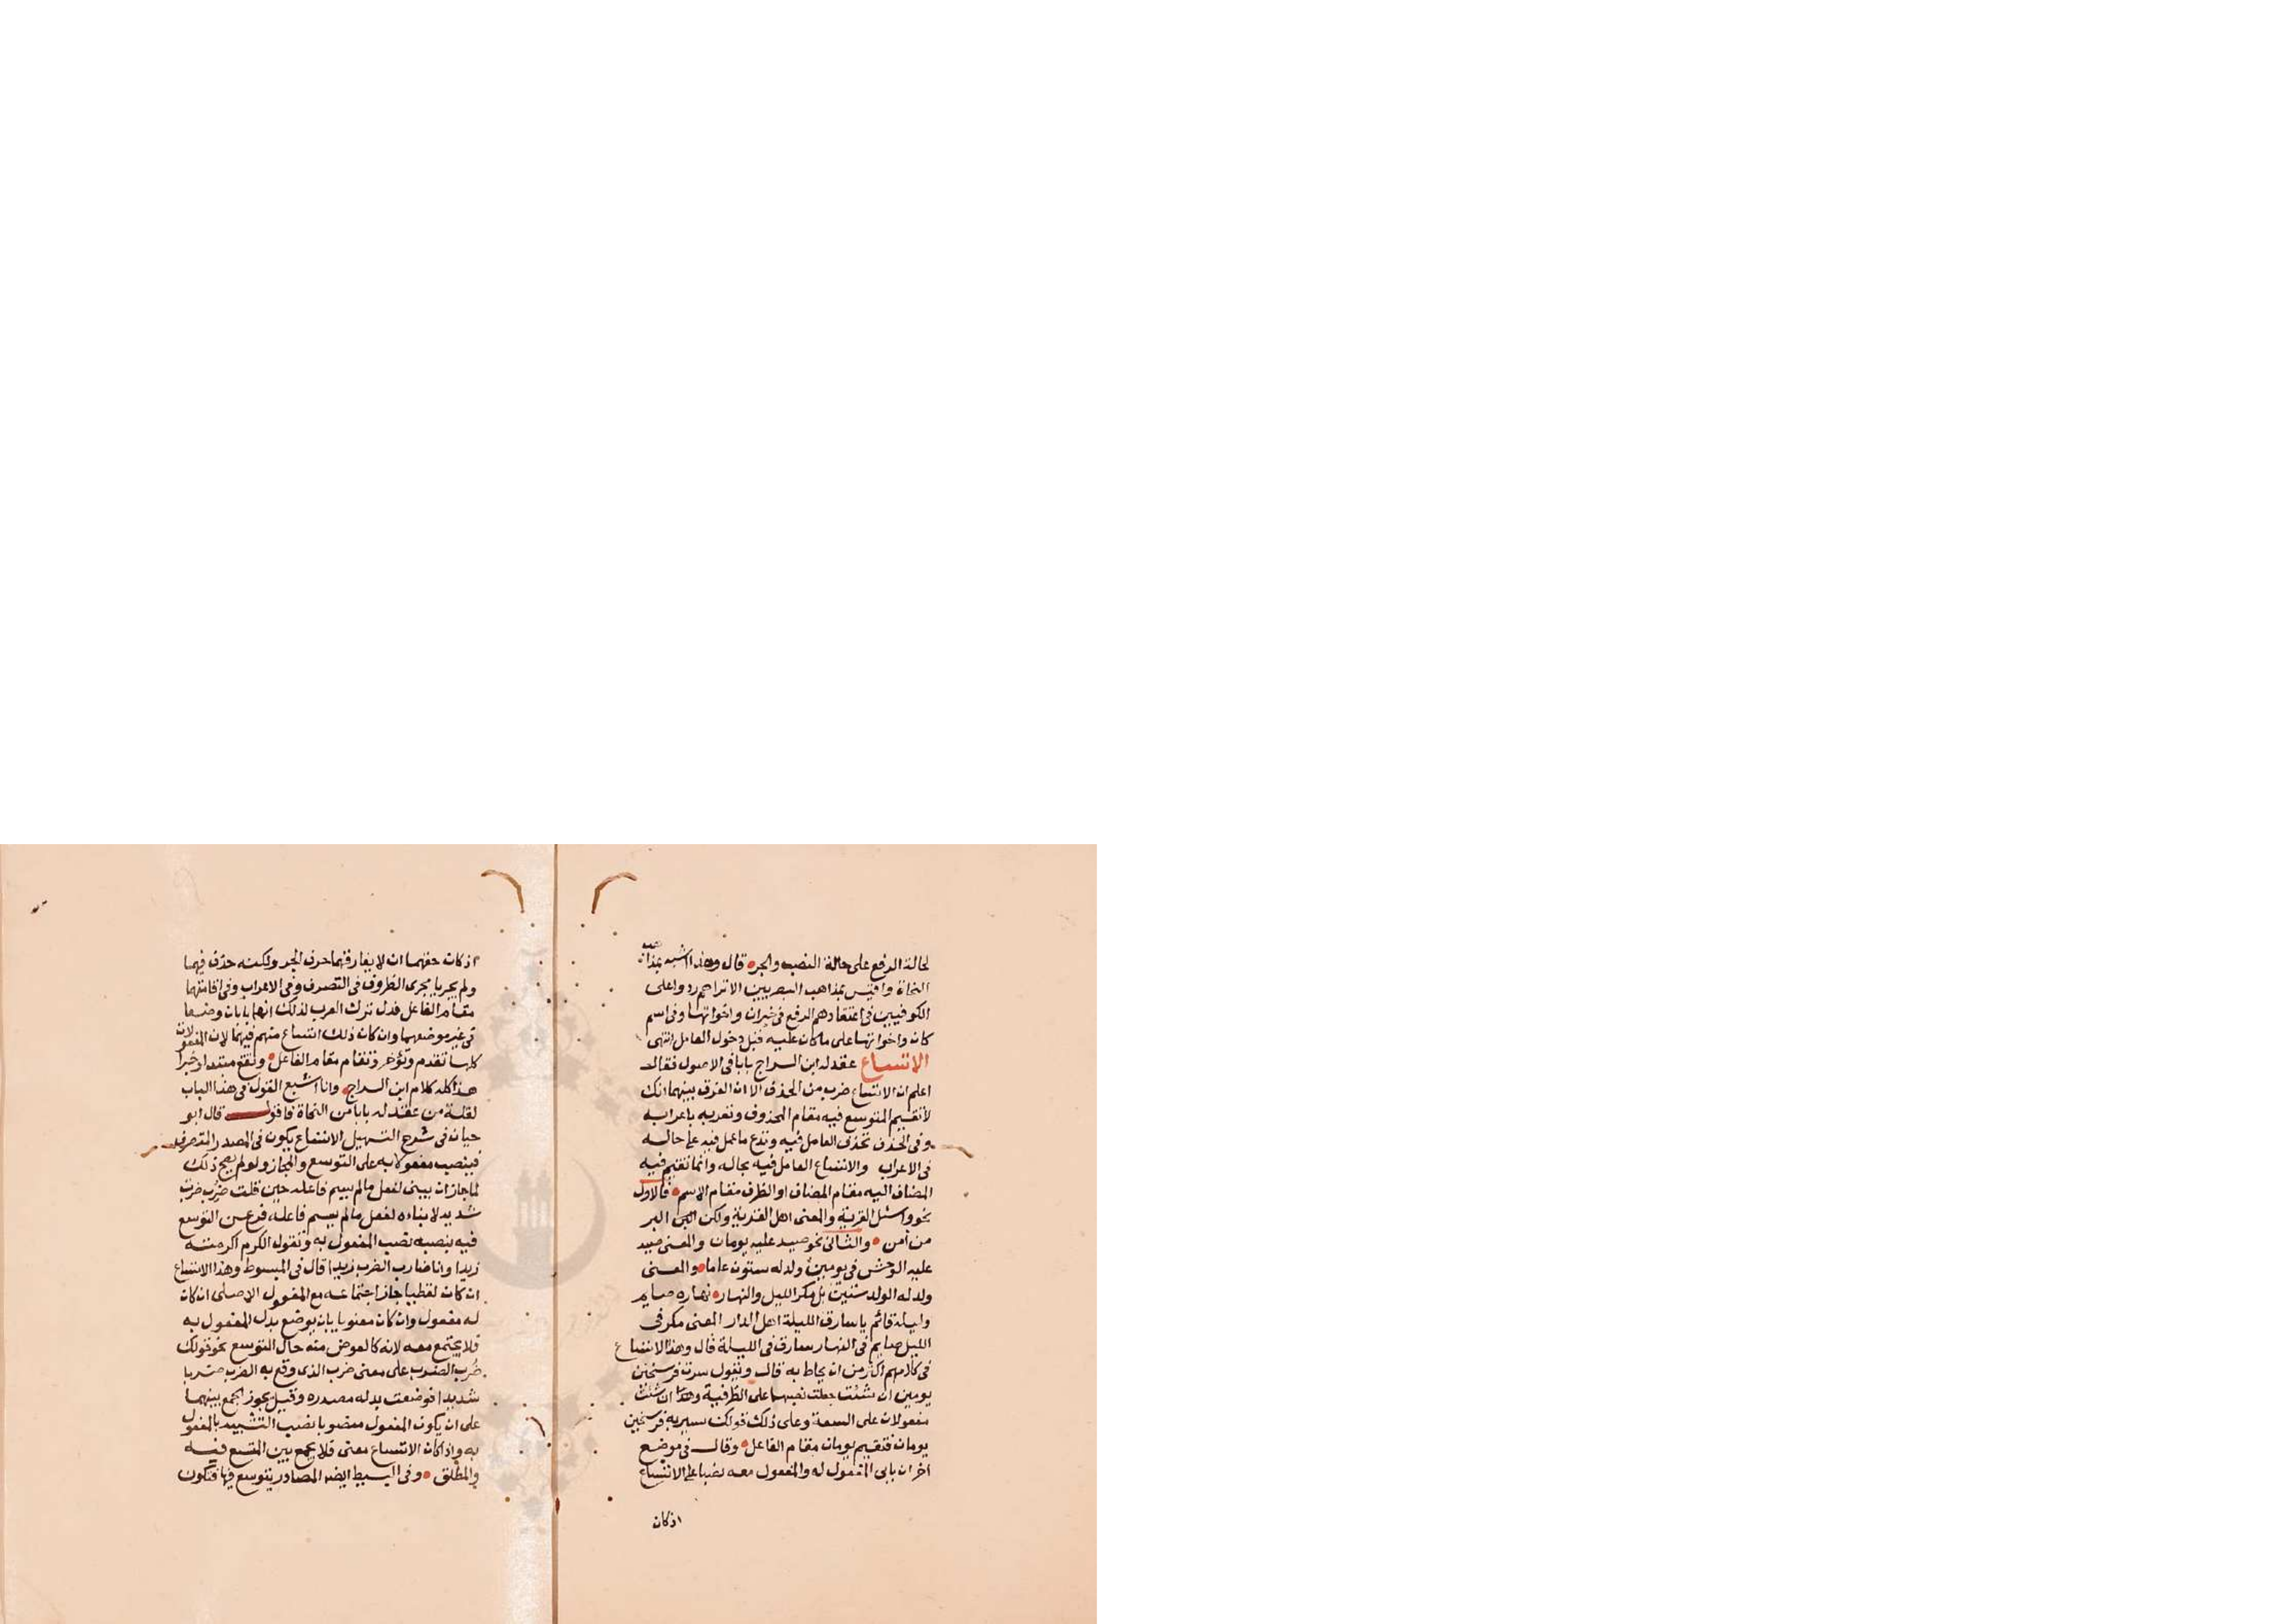 لحالة الرفع على حالة النصب والجر قال وهذا اشبه بمذاهب
النحاة واقيس بمذاهب البصريين الا تراهم ردوا على
الكوفيين في اعتقادهم الرفع في خبر ان واخواتها وفي اسم
كان واخواتها على ما كان عليه قبل دخول العامل انتهى
الاتساع عقد له ابن السراج بابا في الاصول فقال
اعلم ان الاتساع ضرب من الحذف الا ان الفرق بينهما انك
لا تقيم المتوسع فيه مقام المحذوف وتعربه باعرابه
وفي الحذف تحذف العامل فيه وتدع ما عمل فيه على حاله
في الاعراب والاتساع العامل فيه بحاله وانما تقيم فيه
المضاف اليه مقام المضاف او الظرف مقام الاسم فالاول
نحو واسئل القرية والمعنى اهل القرية ولكن البر
من آمن والثاني نحو صيد عليه يومان والمعنى صيد
عليه الوحش في يومين ولد له ستون عاما والمعنى
ولد له الولد ستين بل مكر الليل والنهار نهاره صايم
وليله قائم يا سارق الليلة اهل الدار المعنى مكر في
الليل صايم في النهار سارق في الليلة قال وهذا الاتساع
في كلامهم اكثر من ان يحاط به قال وتقول سرت فرسخين
يومين ان شئت جعلت نصبهما على الظرفية وهذا ان شئت
مفعولان على السعة وعلى ذلك قولك سير به فرسخين
يومان فتقيم يومان مقام الفاعل وقال في موضع
اخر ان بابي المفعول له والمفعول معه نصبا على الاتساع
اذ كان
اذ كان حقهما ان لا يفارقهما حرف الجر ولكنه حذف فيهما
ولم يجريا مجرى الظروف في التصرف وفي الاعراب وفي اقامتهما
مقام الفاعل فدل ترك العرب لذلك انهما بابان وضعا
في غير موضعهما وان كان ذلك اتساع منهم فيهما لان المفعولات
كلها تقدم وتؤخر وتقام مقام الفاعل وتقع مبتدا وخبرا
هذا كله كلام ابن السراج وانا اشبع القول في هذا الباب
لقلة من عقد له بابا من النحاة فاقول قال ابو
حيان في شرح التسهيل الاتساع يكون في المصدر المتصرف
فينصب مفعولا به على التوسع والمجاز ولو لم يصح ذلك
لما جاز ان يبنى لفعل ما لم يسم فاعله حين قلت ضرب ضرب
شديد لان بناءه لفعل ما لم يسم فاعله فرع عن التوسع
فيه بنصبه نصب المفعول به وتقول الكرم اكرمته
زيدا وانا ضارب الضرب زيدا قال في البسيط وهذا الاتساع
ان كان لفظيا جاز اجتماعه مع المفعول الاصلي ان كان
له مفعول وان كان معنويا بان يوضع بدل المفعول به
فلا يجتمع معه لانه كالعوض منه حال التوسع نحو قولك
ضرب الضرب على معنى ضرب الذي وقع به الضرب ضربا
شديدا فوضعت بدله مصدره وقيل يجوز الجمع بينهما
على ان يكون المفعول منصوبا نصب التشبيه بالمفعول
به واذا كان الاتساع معنى فلا يجمع بين المتسع فيه
والمطلق وفي البسيط ايضا المصادر يتوسع فيها فتكون